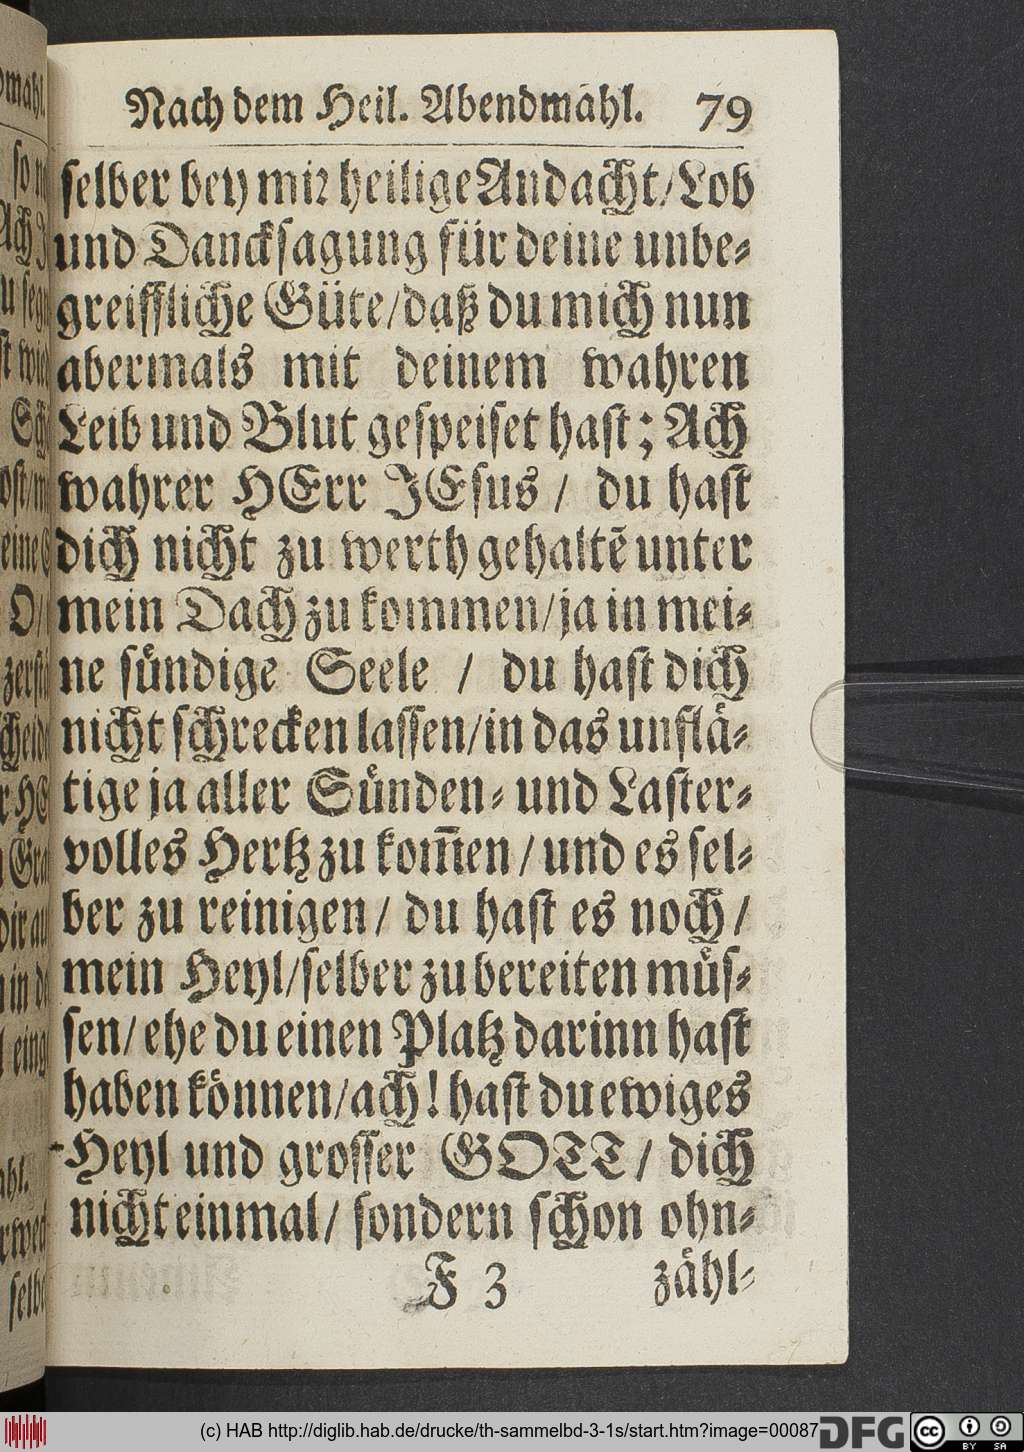 Nach dem Heil. Abendmahl. 79
selber bey mir heilige Andacht/Lob
und Dancksagung für deine unbe-
greiffliche Güte/daß du mich nun
abermals mit deinem wahren
Leib und Blut gespeiset hast; Ach
wahrer HErr JEsus / du hast
dich nicht zu werth gehaltē unter
mein Dach zu kommen/ja in mei-
ne sündige Seele / du hast dich
nicht schrecken lassen/in das unflä-
tige ja aller Sünden- und Laster-
volles Hertz zu kom̄en / und es sel-
ber zu reinigen / du hast es noch /
mein Heyl/selber zu bereiten müs-
sen/ ehe du einen Platz darinn hast
haben können/ach! hast du ewiges
Heyl und grosser GOTT / dich
nicht einmal / sondern schon ohn-
F 3 zähl-
(c) HAB http://diglib.hab.de/drucke/th-sammelbd-3-1s/start.htm?image=00087
DFG
cc BY SA